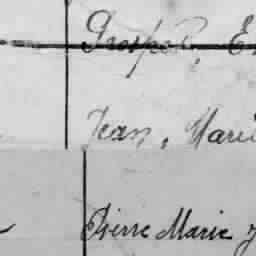 Prosper, E
Jean, Marie
Pierre Marie J